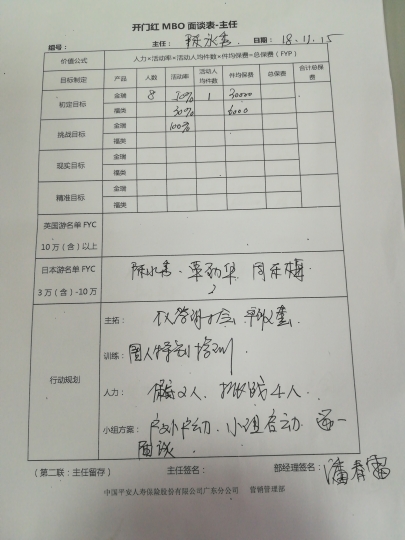 开门红 MBO 面谈表-主任
编号： 主任：陈水秀 日期：18.11.15
价值公式 人力×活动率×活动人均件数×件均保费×总保费（FYP）
目标制定 产品 人数 活动率 活动人均件数 件均保费 总保费 合计总保费
初定目标 金瑞 8 70% 1 30000
福类 30% 6000
挑战目标 金瑞 100%
福类
现实目标 金瑞
福类
精准目标 金瑞
福类
英国游名单 FYC
10 万（含）以上
日本游名单 FYC 陈水秀、覃
3 万（含）-10 万
行动规划
主拓：
训练：
人力： 2人、挑战4人.
小组方案：户外启动、小组启动 逐一
面谈
（第二联：主任留存） 主任签名： 部经理签名：潘春雷
中国平安人寿保险股份有限公司广东分公司 营销管理部